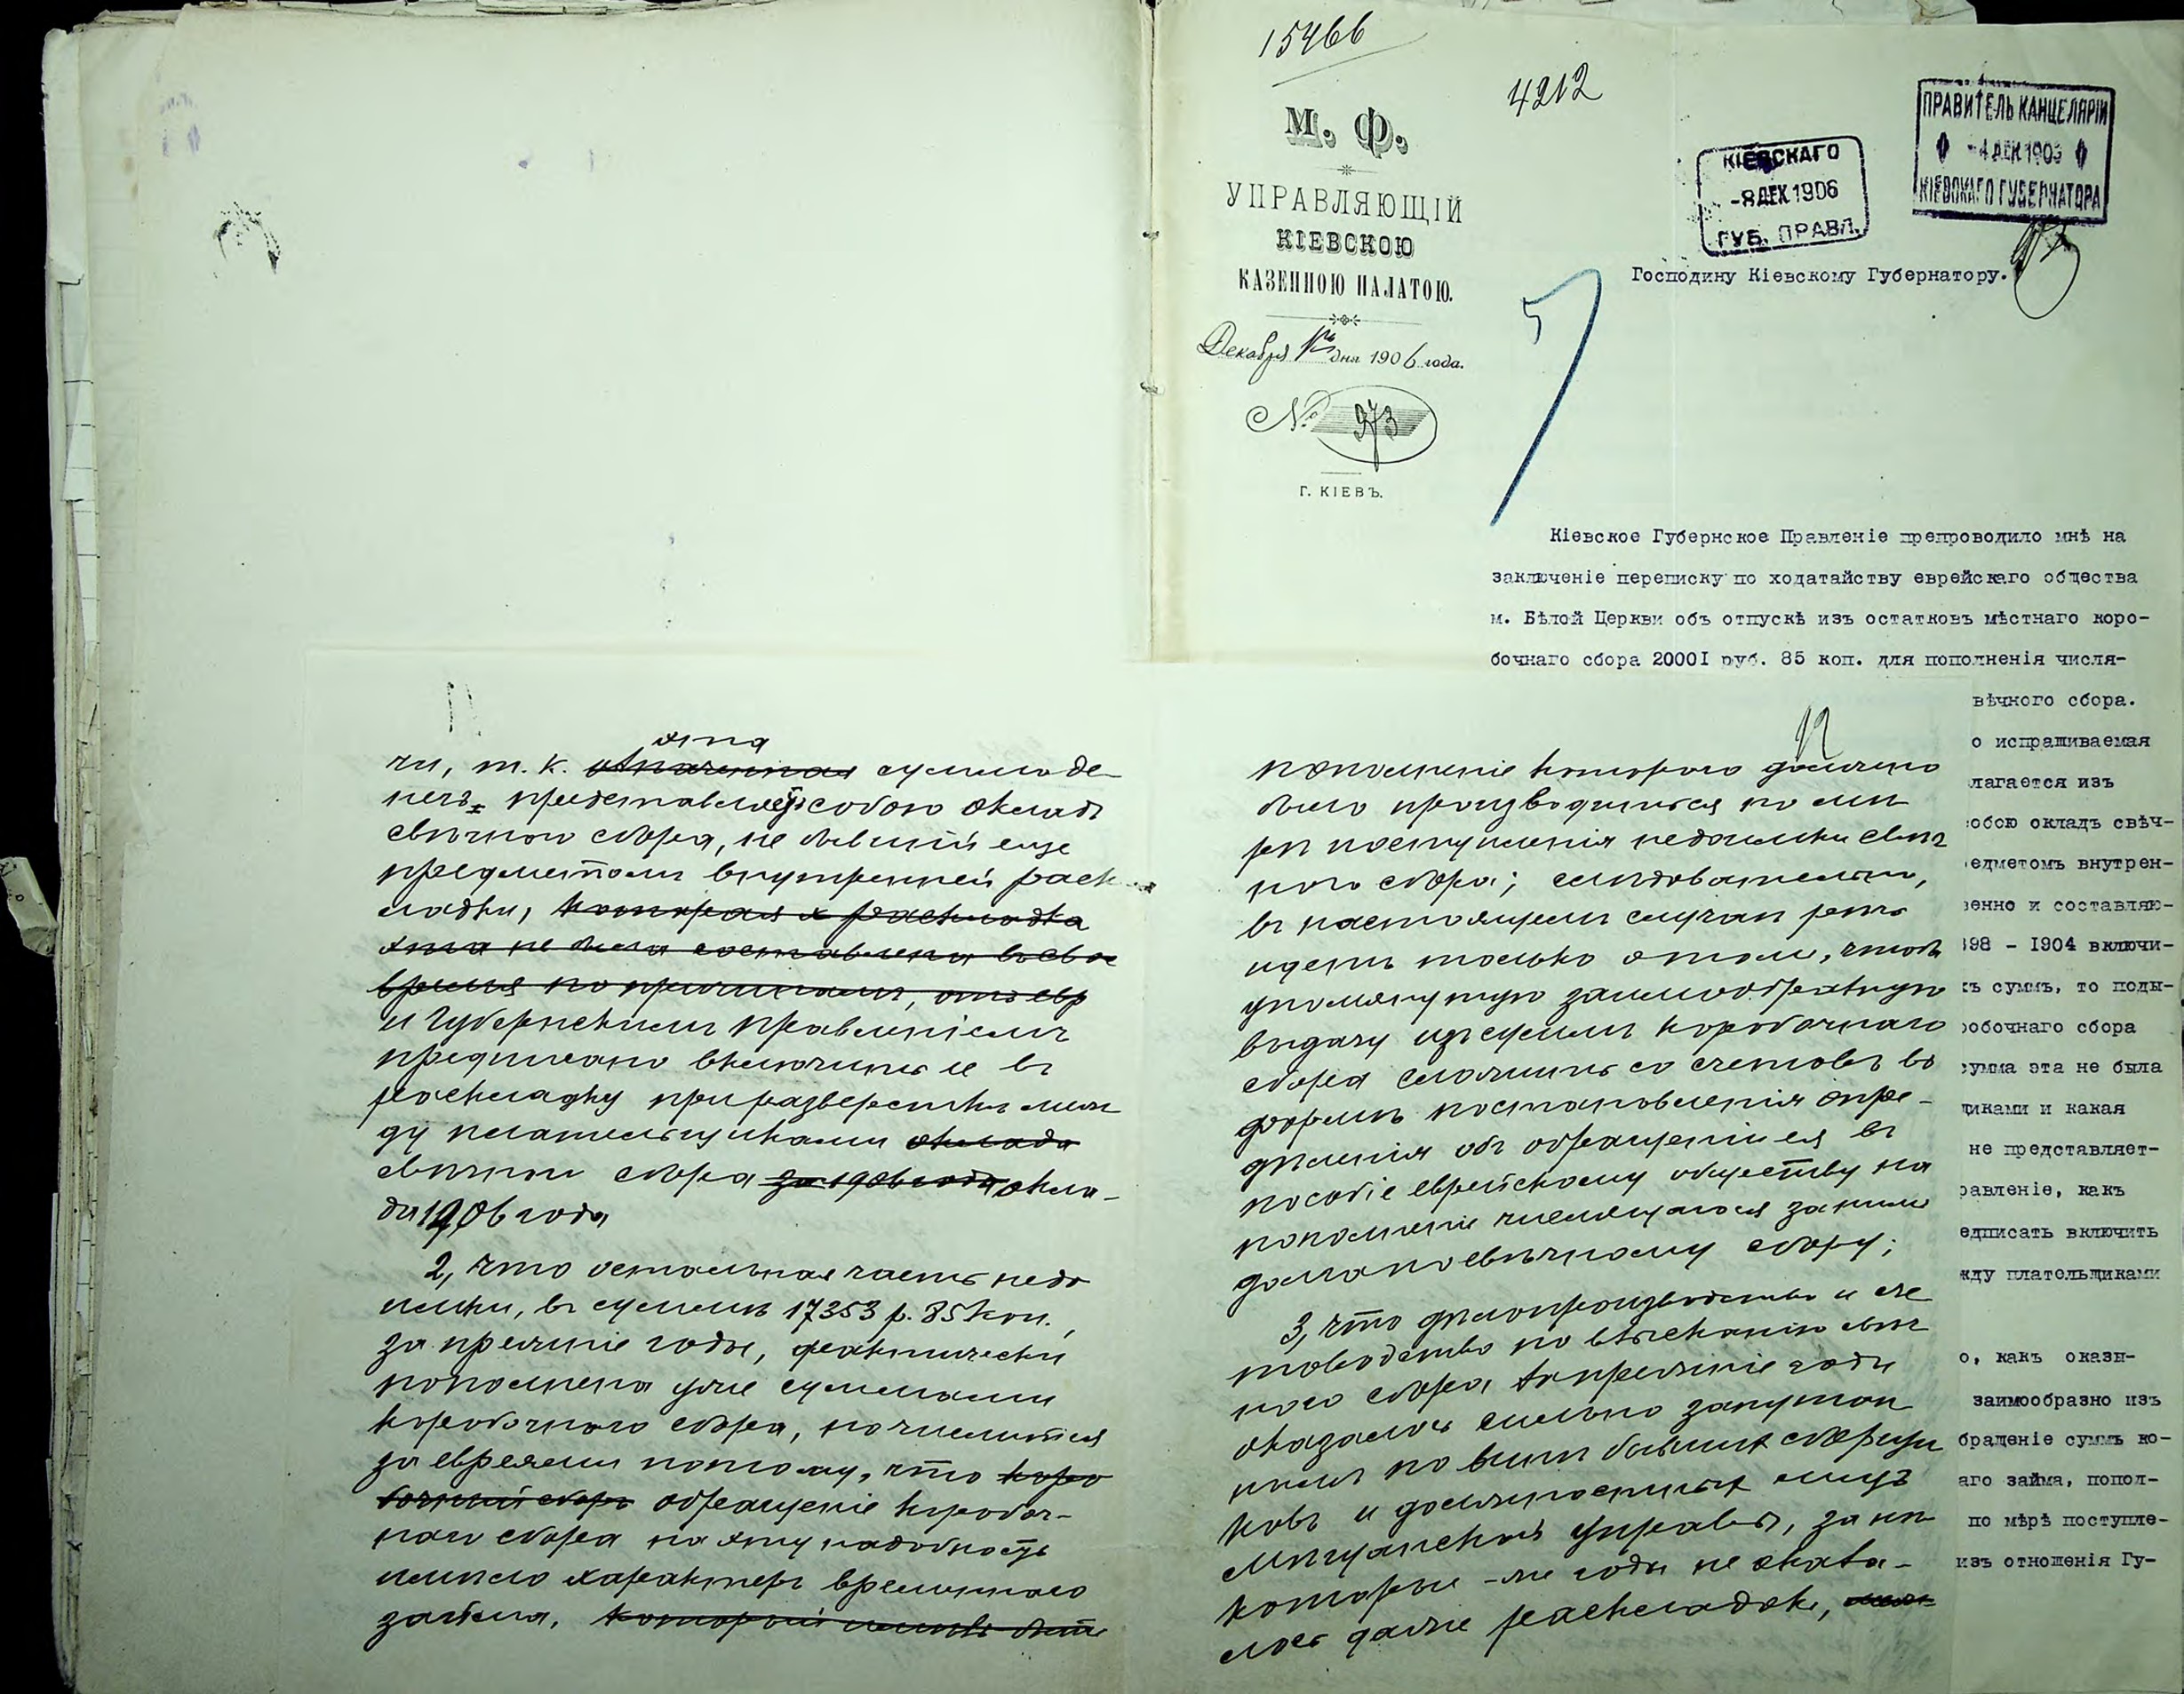 15466
4212
М. Ф.
УПРАВЛЯЮЩІЙ
КІЕВСКОЮ
КАЗЕННОЮ ПАЛАТОЮ.
Декабря дня 1906 года.
№ 973
Г. КІЕВЪ.
КІЕВСКАГО
-8 ДЕК 1906
ГУБ. ПРАВЛ.
ПРАВИТЕЛЬ КАНЦЕЛЯРІИ
-4 ДЕК 1906
КІЕВСКАГО ГУБЕРНАТОРА
Господину Кіевскому Губернатору.
Кіевское Губернское Правленіе препроводило мнѣ на
заключеніе переписку по ходатайству еврейскаго общества
м. Бѣлой Церкви объ отпускѣ изъ остатковъ мѣстнаго коро-
бочнаго сбора 2000I руб. 85 коп. для пополненія числя-
вѣчного сбора.
о испрашиваемая
лагается изъ
собою окладъ свѣч-
едметомъ внутрен-
венно и составляю-
898 - I904 включи-
хъ суммъ, то поды-
обочнаго сбора
сумма эта не была
щиками и какая
не представляет-
равленіе, какъ
едписать включить
жду плательщиками
о, какъ оказы-
заимообразно изъ
бращеніе суммъ ко-
аго займа, попол-
по мѣрѣ поступле-
изъ отношенія Гу-
эта
чи, т. к. отпаченная сумма де-
негъ представляетъ собою окладъ
свѣчного сбора, не бывшій еще
предметомъ внутренней раск-
ладки, которая раскладка
эта не была составлена въ свое
время по причинамъ, отъ евр
и Губернскимъ Правленіемъ
предписано включить ее въ
раскладку при разверсткѣ меж
ду плательщиками оклада
свѣчного сбора за 1906 года окла-
да 1906 года
2, что остальная часть недо
имки, въ суммѣ 17353 р. 85 коп.,
за прежніе годы, фактически
пополнена уже суммами
коробочнаго сбора, но числится
за евреями потому, что коро
бочный сборъ обращеніе коробоч-
наго сбора на эту надобность
имѣло характеръ временнаго
займа, который имѣлъ быть
12
пополненіе котораго должно
было производиться по мѣ
рѣ поступленія недоимки свѣч
ного сбора; слѣдовательно,
въ настоящемъ случаѣ рѣчь
идетъ только о томъ, чтобъ
упомянутую заимообразную
выдачу изъ суммъ коробочнаго
сбора сложить со счетовъ въ
формѣ постановленія опре-
дѣленія объ обращеніи ея въ
пособіе еврейскому обществу на
пополненіе числящагося за нимъ
долга по свѣчному сбору;
3, что дѣлопроизводство и сче
товодство по взысканію свѣч
ного сбора за прежніе годы
оказалось сильно запутан
нымъ по винѣ бывшихъ сборщи
ковъ и должностныхъ лицъ
Мѣщанской Управы, за нѣ
которые-же годы не оказа-
лось даже раскладокъ,